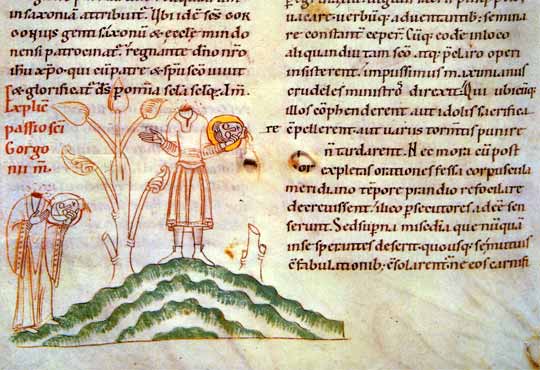 in saxonia attribuit. Ubi idẽ scs̃ gor
gonius genti saxonũ & ecclẽ mindo
nensi patrocinat̃, regnante dño nrõ
ihũ xpõ. qui cũ patre & spũ scõ vivit
& glorificat̃ dś p omnia scla sclꝝ. Am̃.
Explic̃
passio sci
Gorgo
nii m̃.
vacare verbũq; adventantib; semina
re constanter cęperunt. Cũq; de hinc loco
aliquandiu tam scõ. atq; p̃claro operi
insisterent. impiissimus maximianus
crudeles ministros direxit. Qui ubicũq;
illos cõphenderent. aut idolis sacrifica
re cõpellerent. aut variis tormtis punire
ñ tardarent. Nec mora cũ post
expletas orationes fessa corpuscula
meridiano tẽpore prandio refocilare
decrevissent. ilico p̃secutores adee sen
serunt. Sed supna misc̃dia. que nũquã
in se sperantes deserit. quousq; se mutuis
cõfabulationib; cõsolarent̃. ne eos carnifi